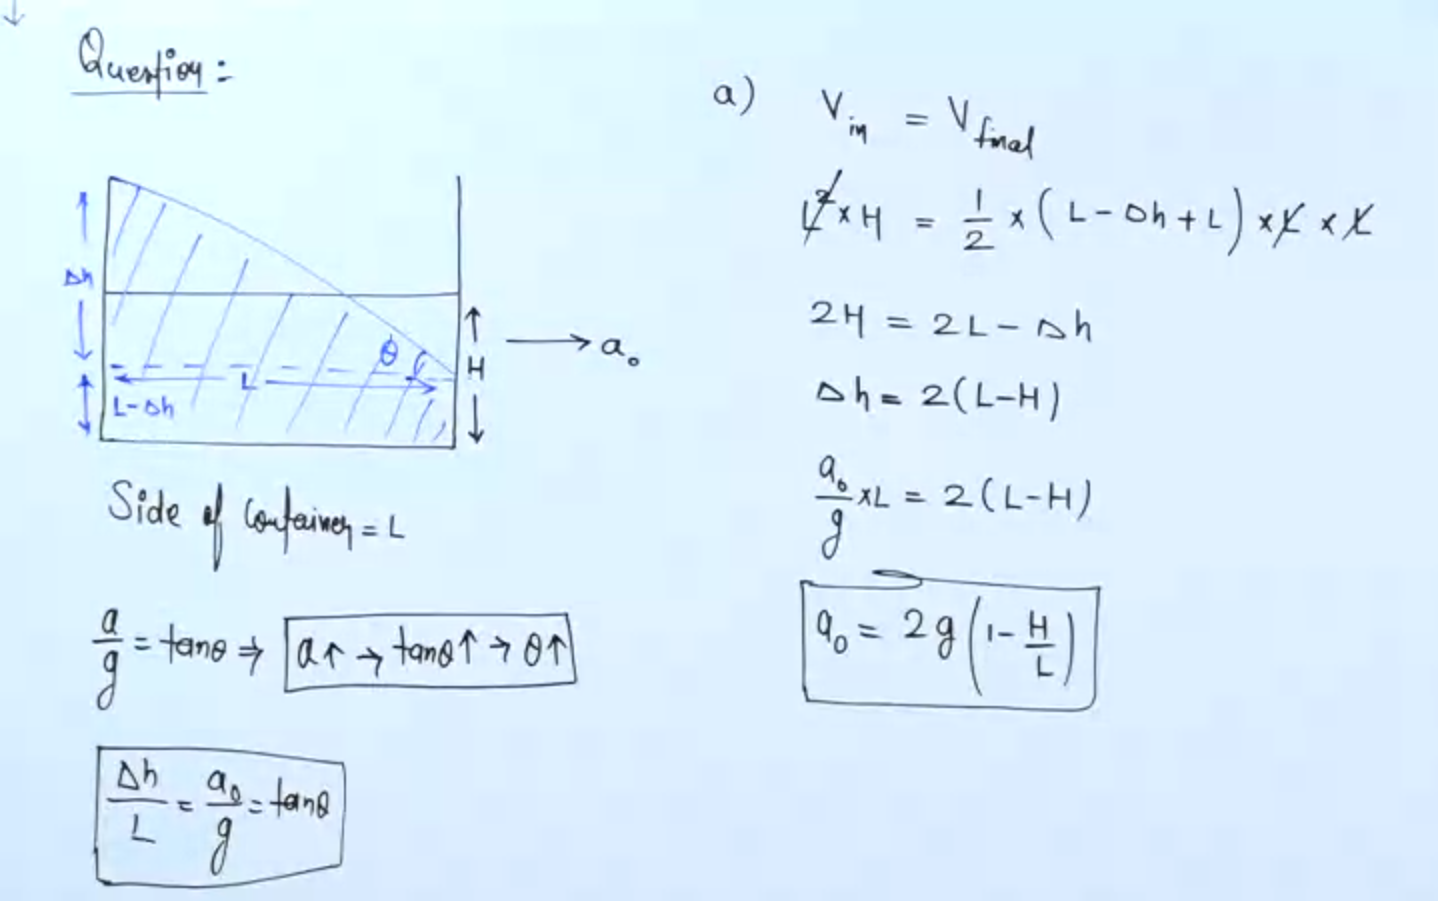 Question :
Δh
θ
L
L-Δh
H
a₀
Side of Container = L
a/g = tanθ ⇒ a↑ → tanθ↑ → θ↑
Δh/L = a₀/g = tanθ
a) V_in = V_final
L² × H = 1/2 × (L - Δh + L) × L × L
2H = 2L - Δh
Δh = 2(L-H)
a₀/g × L = 2(L-H)
a₀ = 2g(1 - H/L)